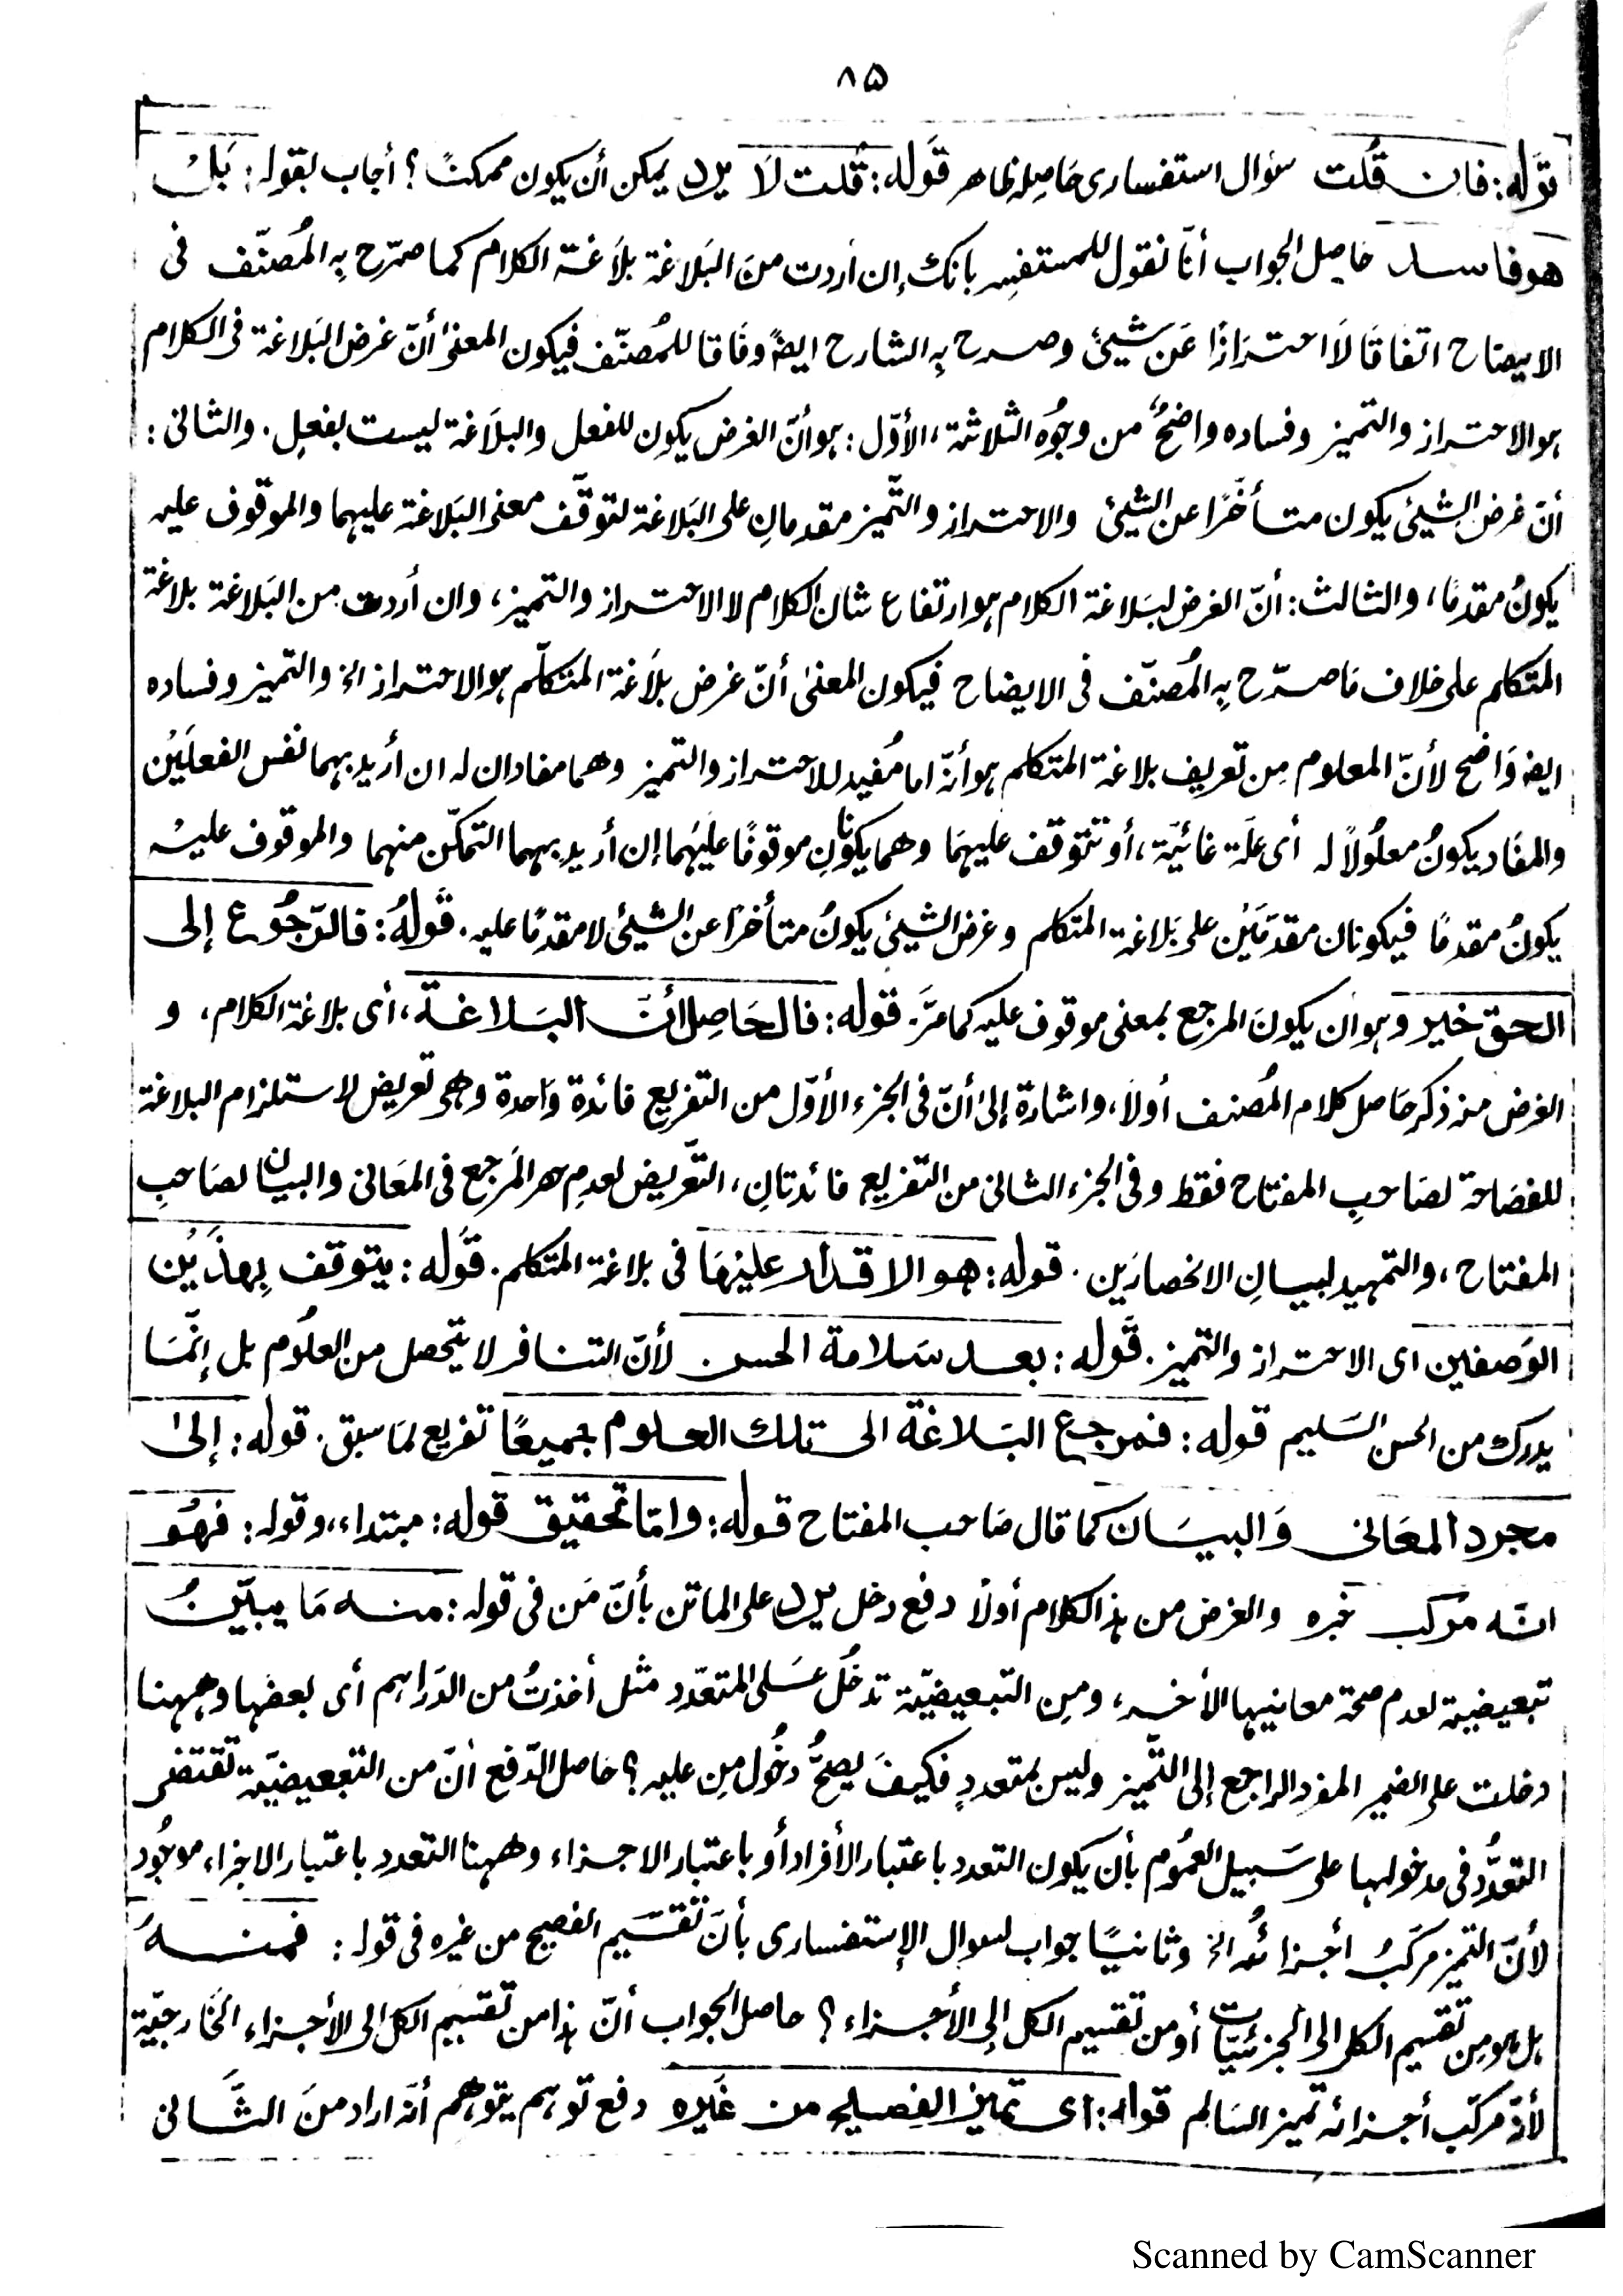 ۸۵
قوله: فان قُلت سؤال استفساری حاصله ظاهر قوله: قلت لَا یرد یمکن أن یکون ممکنًا؟ أجاب بقوله: بَلْ
هو فاسد حاصل الجواب أنّا نقول للمستفسِر بانك إن أردت منَ البَلاغة بلَاغة الکلام کما صرّح بِه المُصنّف فی
الایضاح اتفاقًا لَا احترازًا عَن شیئ وصرح بِه الشارح ایضً وفاقا للمُصنّف فیکون المعنیٰ أنّ غرض البَلاغة فی الکلام
هو الاحتراز والتمیز وفساده واضحٌ من وجُوه الثلاثة، الأوّل: هو أنّ الغرض یکون للفعل والبلَاغة لیست بفعلِ. والثانی:
أنّ غرض الشیئ یکون متأخّرًا عن الشیئ والاحتراز والتّمیز مقدمانِ علی البَلاغة لتوقّف معنی البَلاغة علیهما والموقوف علیه
یکونُ مقدمًا، والثالث: أنّ الغرض لبَلاغة الکلام هو ارتفاع شان الکلام لا الاحتراز والتمیز، وان أردت من البَلاغة بلاغة
المتکلم علی خلاف مَا صرّح بِه المُصنّف فی الایضاح فیکون المعنیٰ أنّ غرض بلَاغة المتکلّم هو الاحتراز الخ والتمیز وفساده
ایضً وَاضح لأنّ المعلوم مِن تعریف بلاغة المتکلم هو أنّه اما مُفید للاحتراز والتمیز وهما مفادان له ان أرید بهما نفس الفعلَیْن
والمفَاد یکونُ معلُولاً له أی علّة غائیَة، أو تتوقف علیهمَا وهما یکونَانِ موقوفًا علَیْهما إن أرید بهما التمکّن منهما والموقوف علیْه
یکونُ مقدمًا فیکونان مقدّمَیْن علی بَلاغة المتکلم وغرض الشیئ یکونُ متأخرًا عن الشیئ لا مقدمًا علیه. قَولهُ: فالرّجُوع إلی
الحق خیر وهو ان یکونَ المرجع بمعنی موقوف علیه کما مرَّ. قوله: فالحَاصِل أنَّ البَلاغة، أی بلاغة الکلام، و
الغرض منه ذکر حَاصل کلام المُصنف أولاً، واشارة إلیٰ أنّ فی الجزء الأوّل من التفریع فائدة وَاحدة وهی تعریض لاستلزام البلاغة
للفصَاحة لصَاحبِ المفتاح فقط وفی الجزء الثانی من التّفریع فائدتانِ، التّعریض لعدمِ حصر المَرجع فی المعَانی والبیان لصَاحبِ
المفتاح، والتمهید لبیانِ الانحصارَین. قوله: هو الاقدار علیْهَا فی بلاغة المتکلم. قَوله: یتوقف بِهذَیْن
الوَصفین ای الاحتراز والتمیز. قَوله: بعد سَلامة الحس لأنّ التنافر لا یتحصل من العلُوم بل إنّمَا
یدرك من الحس السَلیم قوله: فمرجع البَلاغَة الی تلك العلوم جمیعًا تفریع لمَا سبق. قوله: إلیٰ
مجرد المعَانی وَالبیَان کما قال صَاحب المفتاح قوله: وامّا تحقیق قوله: مبتداء، وقوله: فهُو
انّه مرکب خبره والغرض من هذ الکلام أولاً دفع دخل یرد علی الماتن بأنّ مَن فی قوله: منه مَا یبیّنُ
تبعیضیة لعدم صحة معانیها الأخر، ومِن التّبعیضیّة تدخُل عَلی المتعدّد مثل أخذتُ من الدَراهم أی بعضها وههنا
دخلت علی الضمیر المفرد الراجع إلی التّمیز ولیس بمتعددٍ فکیفَ یصحُّ دخُول مِن علیه؟ حاصل الدّفع أنّ من التّبعیضیّة تقتضی
التعدُّد فی مدخولها علی سَبیل العمُوم بأن یکون التعدد باعتبار الأفراد أو باعتبار الاجزاء وههنا التعدد باعتبار الاجزاء موجُود
لأنّ التمیز مرکبُ أجزائُه الخ وثانیًا جواب لسوال الإستفساری بأنّ تقسَیم الفصیح من غیره فی قوله: فمنهُ
بل هو مِن تقسیم الکلی الی الجزئیّات أو من تقسیم الکل إلی الأجزاء؟ حاصل الجواب أنّ هذا من تقسیم الکل الی الأجزاء الخَارجیّة
لأنّه مرکّب أجزائه تمیز السَالم قوله: ای تمیز الفصیح من غَیره دفع توهم یتوهم أنّه اراد منَ الثَّانی
Scanned by CamScanner